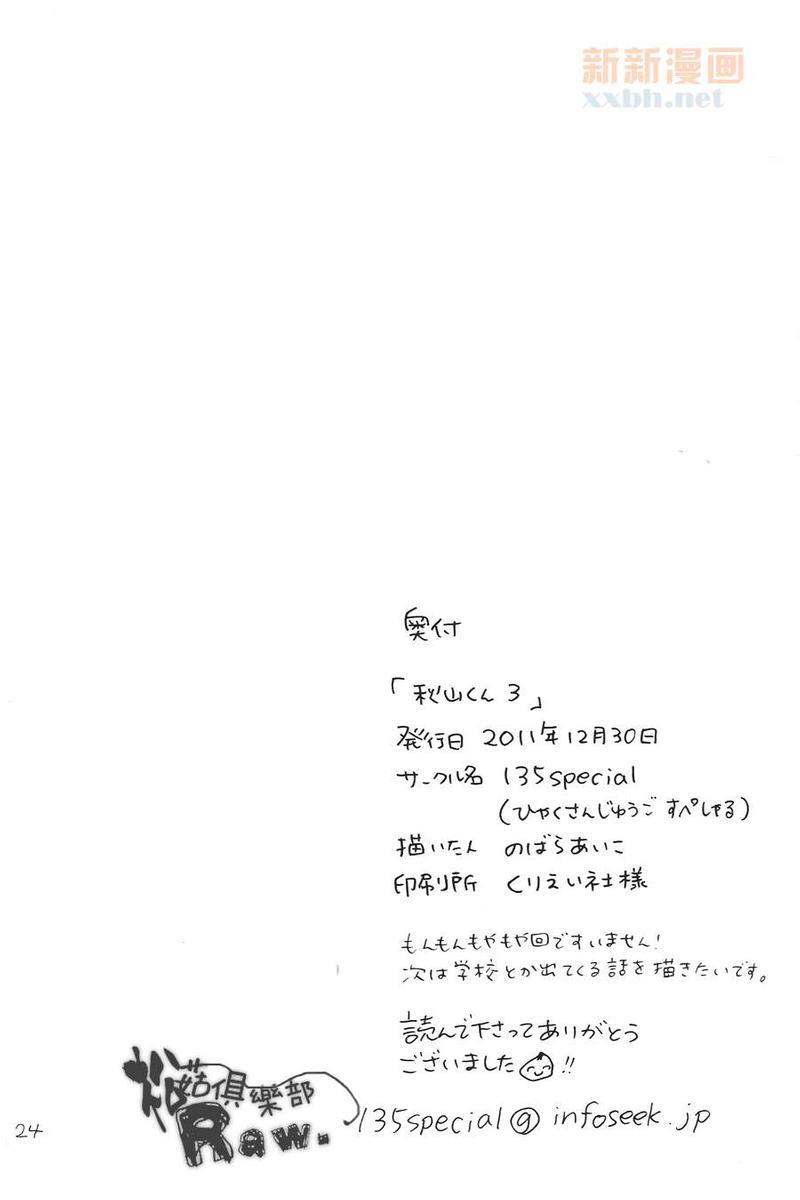 新新漫画
xxbh.net
奥付
「秋山くん 3」
発行日 2011年12月30日
サークル名 135special
(ひゃくさんじゅうご すぺしゃる)
描いたん のばらあいこ
印刷所 くりえい社様
もんもんもやもや回ですいません!
次は学校とか出てくる話を描きたいです。
読んで下さってありがとう
ございました!!
菇倶樂部
Raw.
135special@infoseek.jp
24